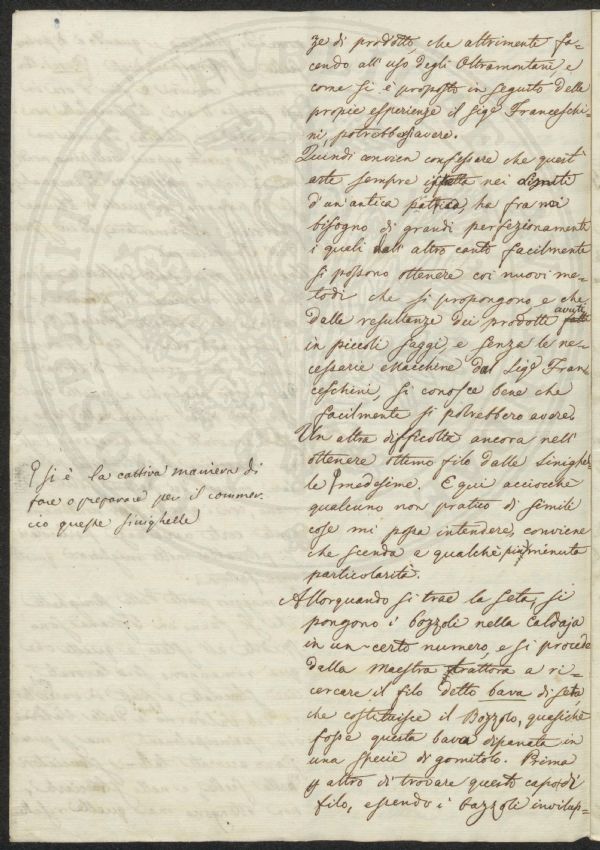 ze di prodotto, che altrimente fa-
cendo all'uso degli Oltramontani, e
come si è proposto in seguito delle
propie esperienze il Sigr Franceschi-
ni, potrebbesi avere.
Quindi convien confessare che quest'
arte sempre ristretta nei limiti
d'un'antica pratica, ha fra noi
bisogno di grandi perfezionamenti
i quali dall'altro canto facilmente
si possono ottenere coi nuovi me-
todi che si propongono, e che
dalle resultanze dei prodotti avuti
in piccoli saggi, e senza le ne-
cessarie Macchine dal Sigr Fran-
ceschini si conosce bene che
facilmente si potrebbero avere.
Un altra difficoltà ancora nell'
ottenere ottimo filo dalle sinighel-
le medesime. E qui acciocche
qualcuno non pratico di simili
cose mi possa intendere, conviene
che scenda a qualche più minuta
particolarità.
si è la cattiva maniera di
fare o preparare per il commer-
cio queste sinighelle
Allorquando si trae la seta, si
pongono i bozzoli nella Caldaja
in un certo numero, e si procede
dalla Maestra trattora a ri-
cercare il filo detto bava di seta,
che costituisce il Bozzolo, quasiché
fosse questa bava dipanata in
una specie di gomitolo. Prima
altro di trovare questo capo di
filo, essendo i bozzoli invilup-